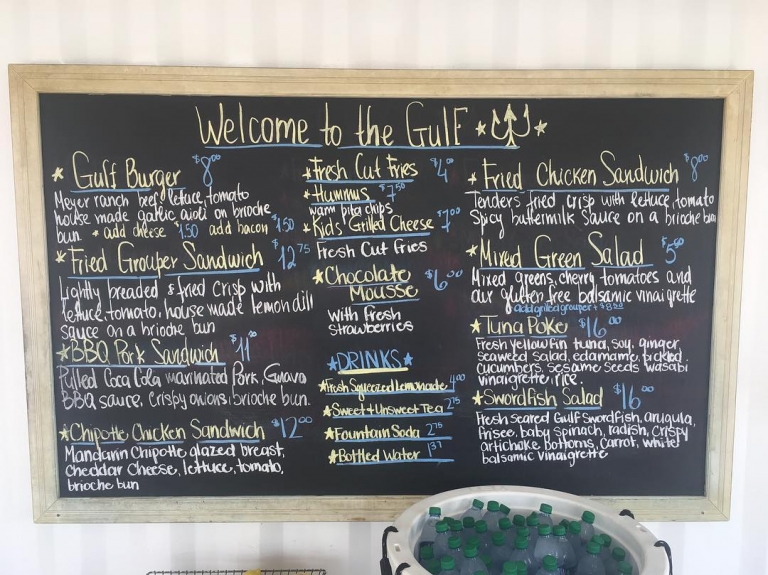 Welcome to the Gulf
Gulf Burger $8.00
Meyer ranch beef, lettuce, tomato
house made garlic aioli on brioche
bun + add cheese $1.50 add bacon $1.50
Fried Grouper Sandwich $12.75
Lightly breaded & fried crisp with
lettuce, tomato, house made lemon dill
sauce on a brioche bun
BBQ Pork Sandwich $11.00
Pulled Coca Cola marinated Pork, Guava
BBQ sauce, crispy onions, brioche bun.
Chipotle Chicken Sandwich $12.00
Mandarin Chipotle glazed breast,
cheddar cheese, lettuce, tomato,
brioche bun
Fresh Cut Fries $4.00
Hummus $7.50
warm pita chips
Kids Grilled Cheese $7.00
Fresh Cut Fries
Chocolate $6.00
Mousse
With Fresh
Strawberries
DRINKS
Fresh Squeezed Lemonade 4.00
Sweet & Unsweet Tea 2.75
Fountain Soda 2.75
Bottled Water
Fried Chicken Sandwich $8.00
Tenders fried crisp with lettuce, tomato
Spicy buttermilk sauce on a brioche bun
Mixed Green Salad $5.00
Mixed greens, cherry tomatoes and
our gluten free balsamic vinaigrette
add grilled grouper +
Tuna Poke $16.00
Fresh yellowfin tuna, soy, ginger,
seaweed salad, edamame, pickled
cucumbers, sesame seeds wasabi
vinaigrette, rice.
Swordfish Salad $16.00
Fresh seared Gulf Swordfish, arugula,
frisee, baby spinach, radish, crispy
artichoke bottoms, carrot, white
balsamic vinaigrette